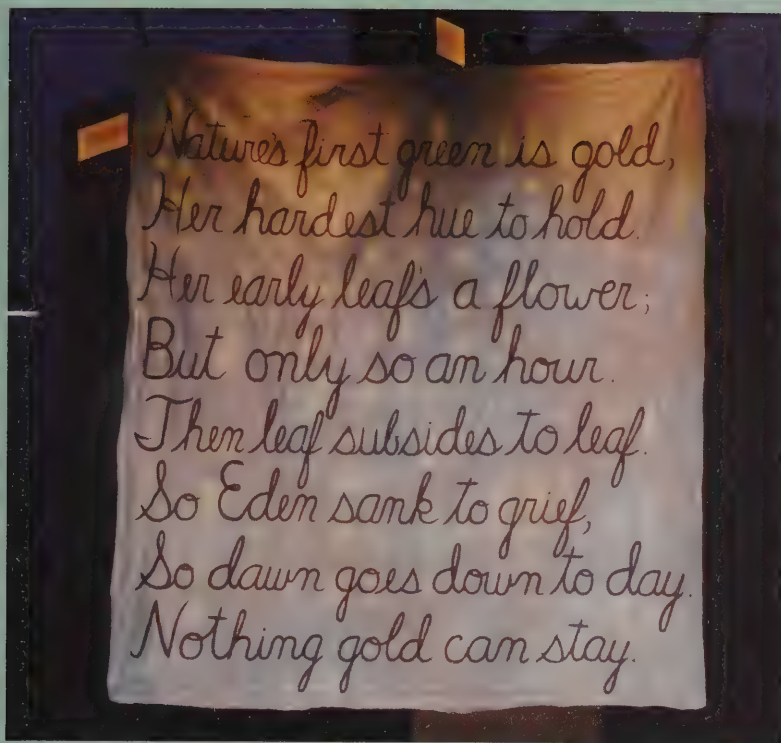 Nature's first green is gold,
Her hardest hue to hold.
Her early leaf's a flower;
But only so an hour.
Then leaf subsides to leaf.
So Eden sank to grief,
So dawn goes down to day.
Nothing gold can stay.